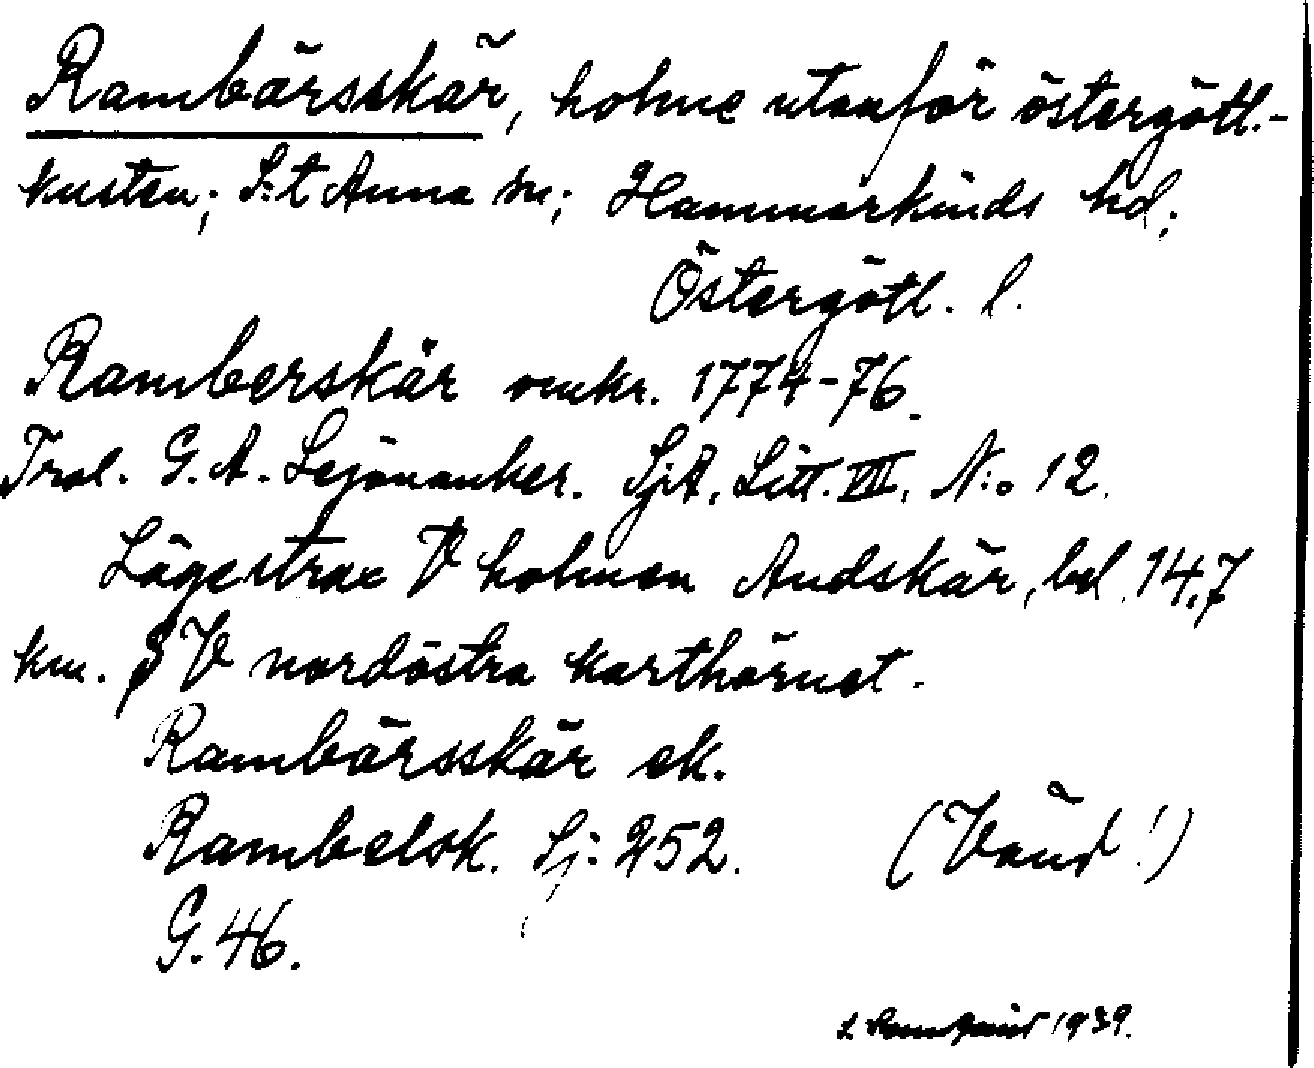 Rambärsskär, holme utanför östergötl.-
kusten; S:t Anna sn; Hammarkinds hd;
Östergötl. l.
Ramberskär omkr. 1774-76.
Trol. G. A. Lejonanker. SjA. Litt. VII. N:o 12.
Läge strax V holmen Andskär, bel. 14,7
km. SV nordöstra karthörnet.
Rambärsskär ek.
Rambelsk. Sj: 252. (Vänd!)
G. 46.
1939.